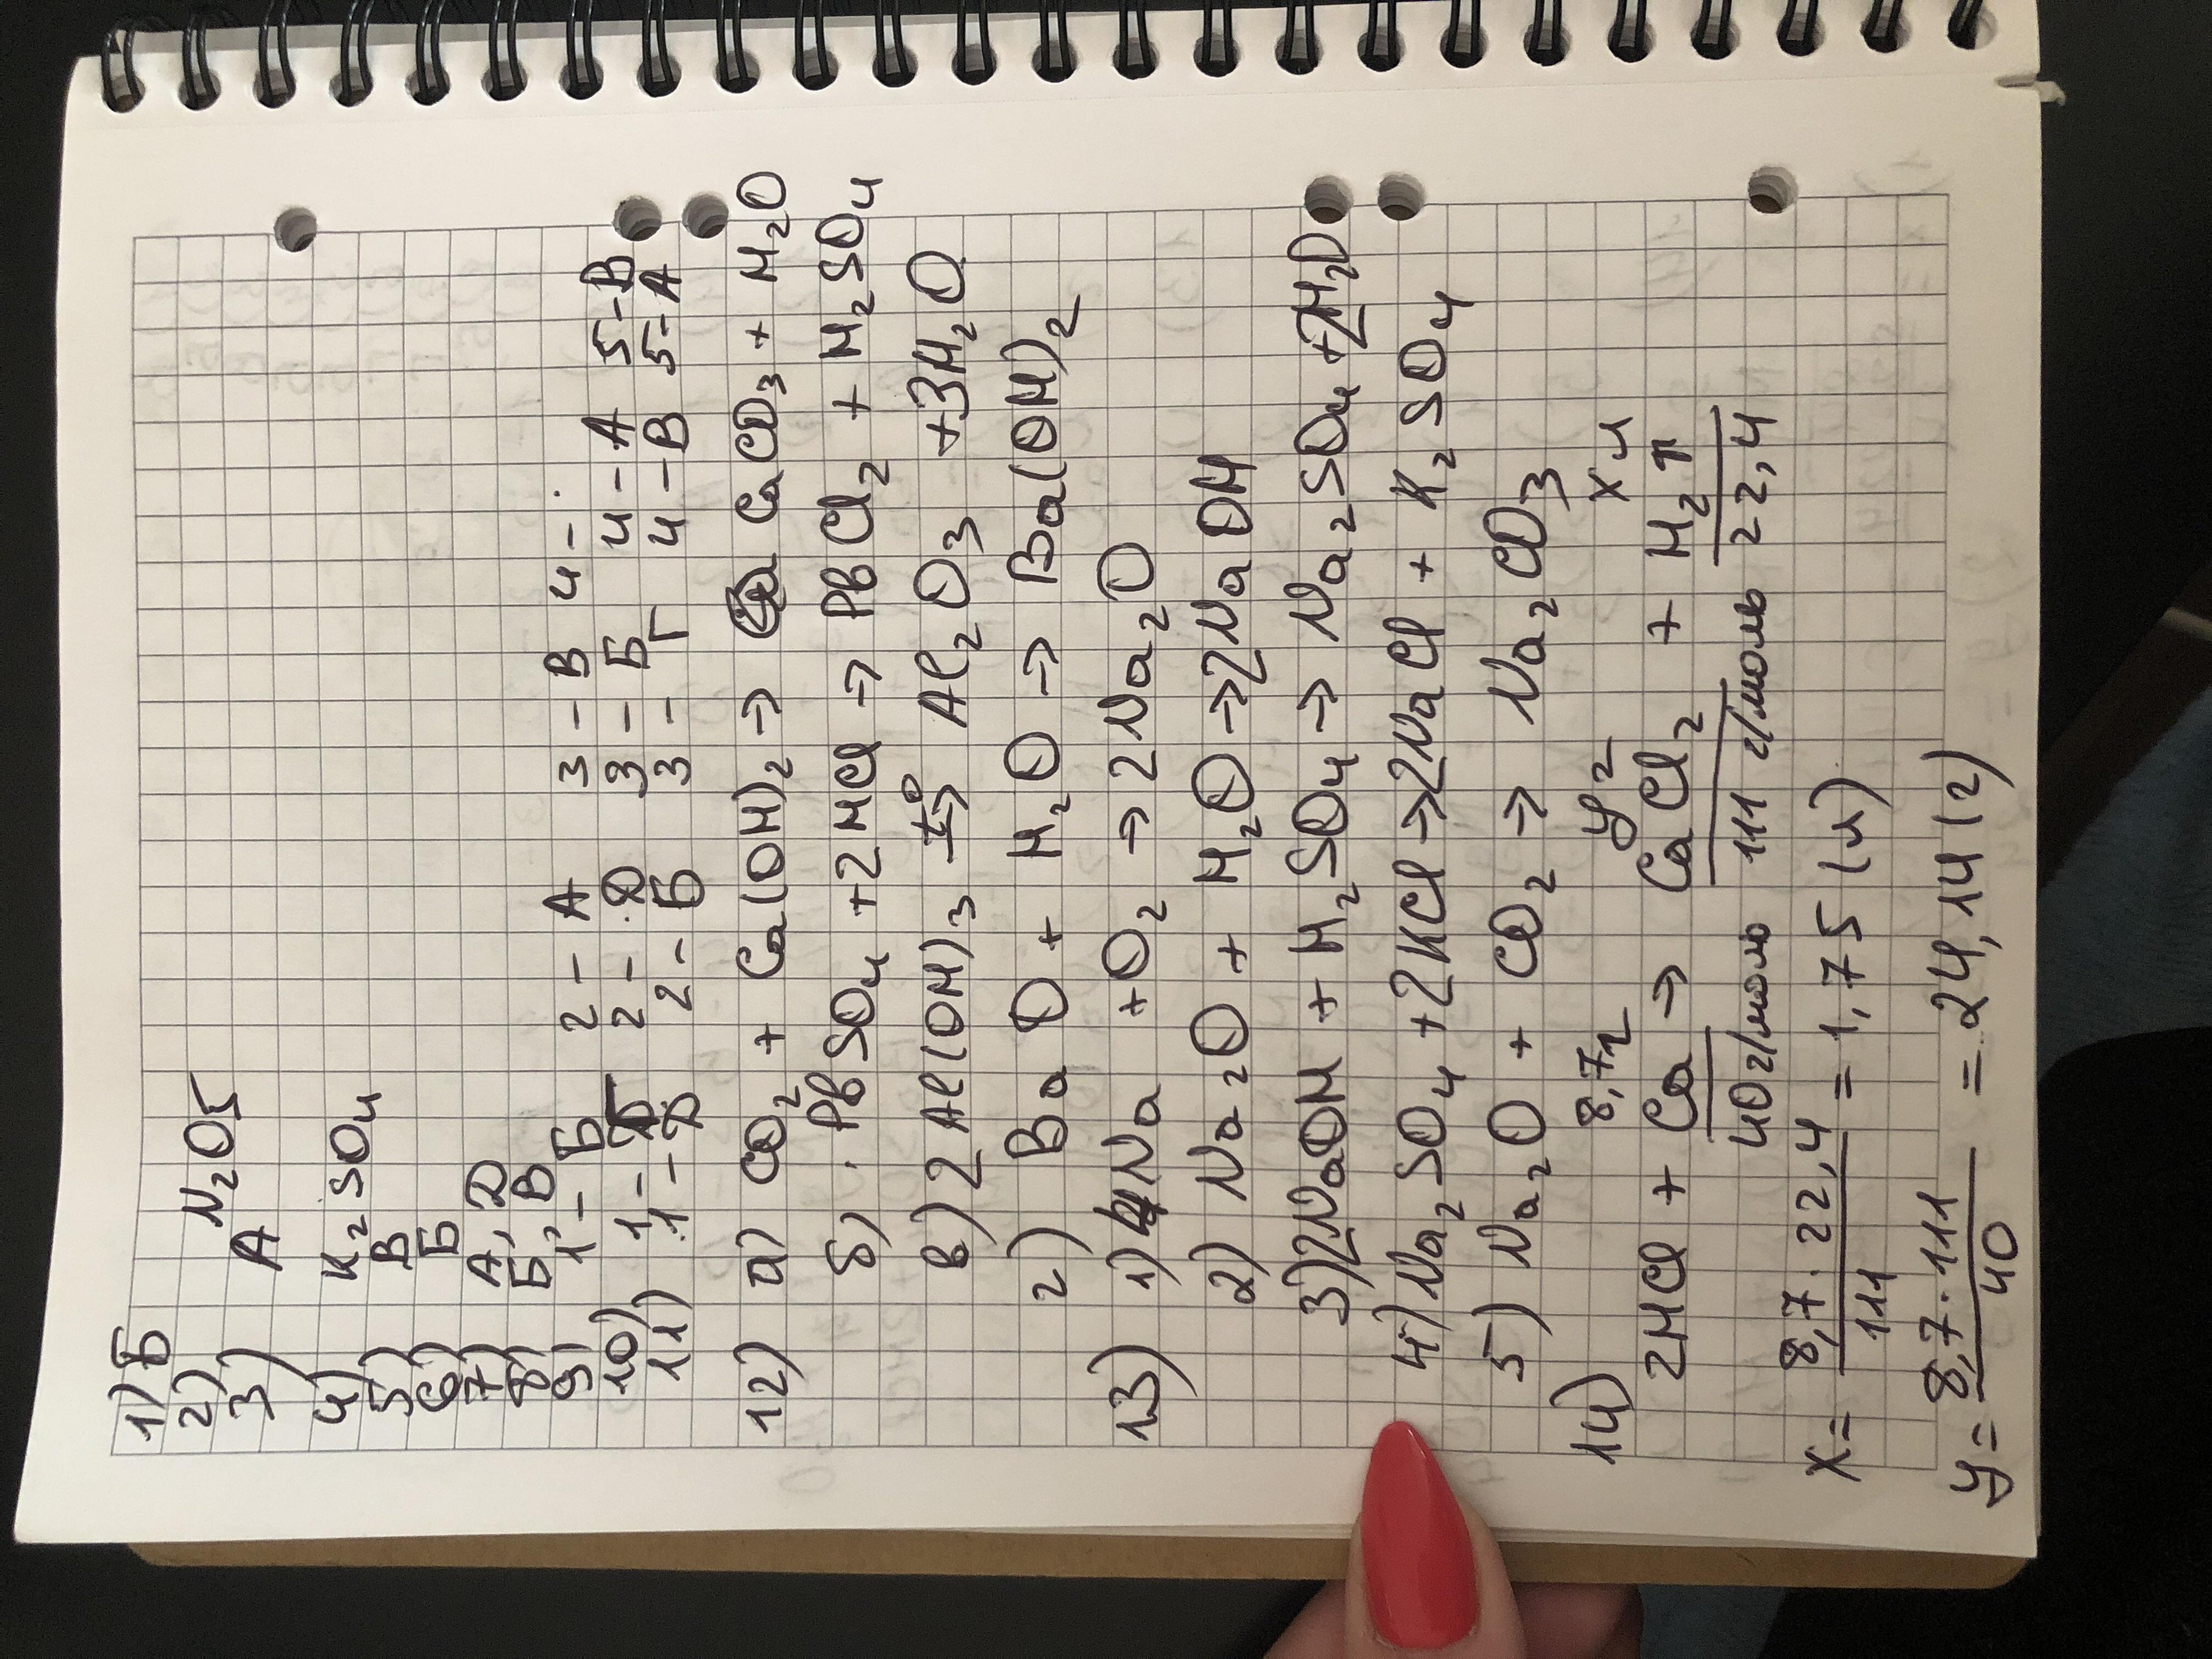 1) Б
2) N₂O5
3) А
4) K₂SO₄
5) В
6) Б
7) А, Д
8) Б, В
9) 1 - Б 2 - А 3 - В 4 - .
10) 1 - Г 2 - Д 3 - Б 4 - А 5 - В
11) 1 - Д 2 - Б 3 - Г 4 - В 5 - А
12) а) CO₂ + Ca(OH)₂ → CaCO₃ + H₂O
б) PbSO₄ + 2HCl → PbCl₂ + H₂SO₄
в) 2Al(OH)₃ t°→ Al₂O₃ + 3H₂O
г) BaO + H₂O → Ba(OH)₂
13) 1) 4Na + O₂ → 2Na₂O
2) Na₂O + H₂O → 2NaOH
3) 2NaOH + H₂SO₄ → Na₂SO₄ + 2H₂O
4) Na₂SO₄ + 2KCl → 2NaCl + K₂SO₄
5) Na₂O + CO₂ → Na₂CO₃
14) 8,7г yг xл
2HCl + Ca → CaCl₂ + H₂↑
40г/моль 111 г/моль 22,4
x = 8,7 · 22,4 / 111 = 1,75 (л)
y = 8,7 · 111 / 40 = 24,14 (г)